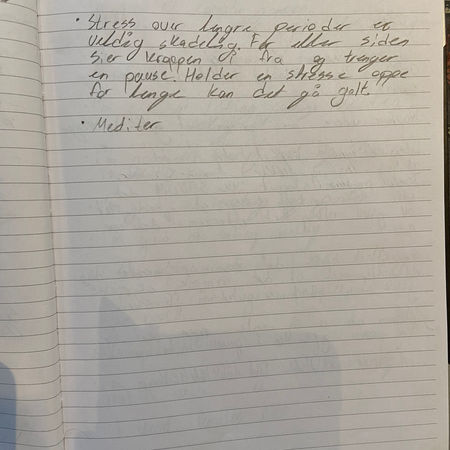 • Stress over lengre perioder er
veldig skadelig. Før eller siden
sier kroppen i fra og trenger
en pause. Holder en stresse oppe
for lenge kan det gå galt.
• Mediter